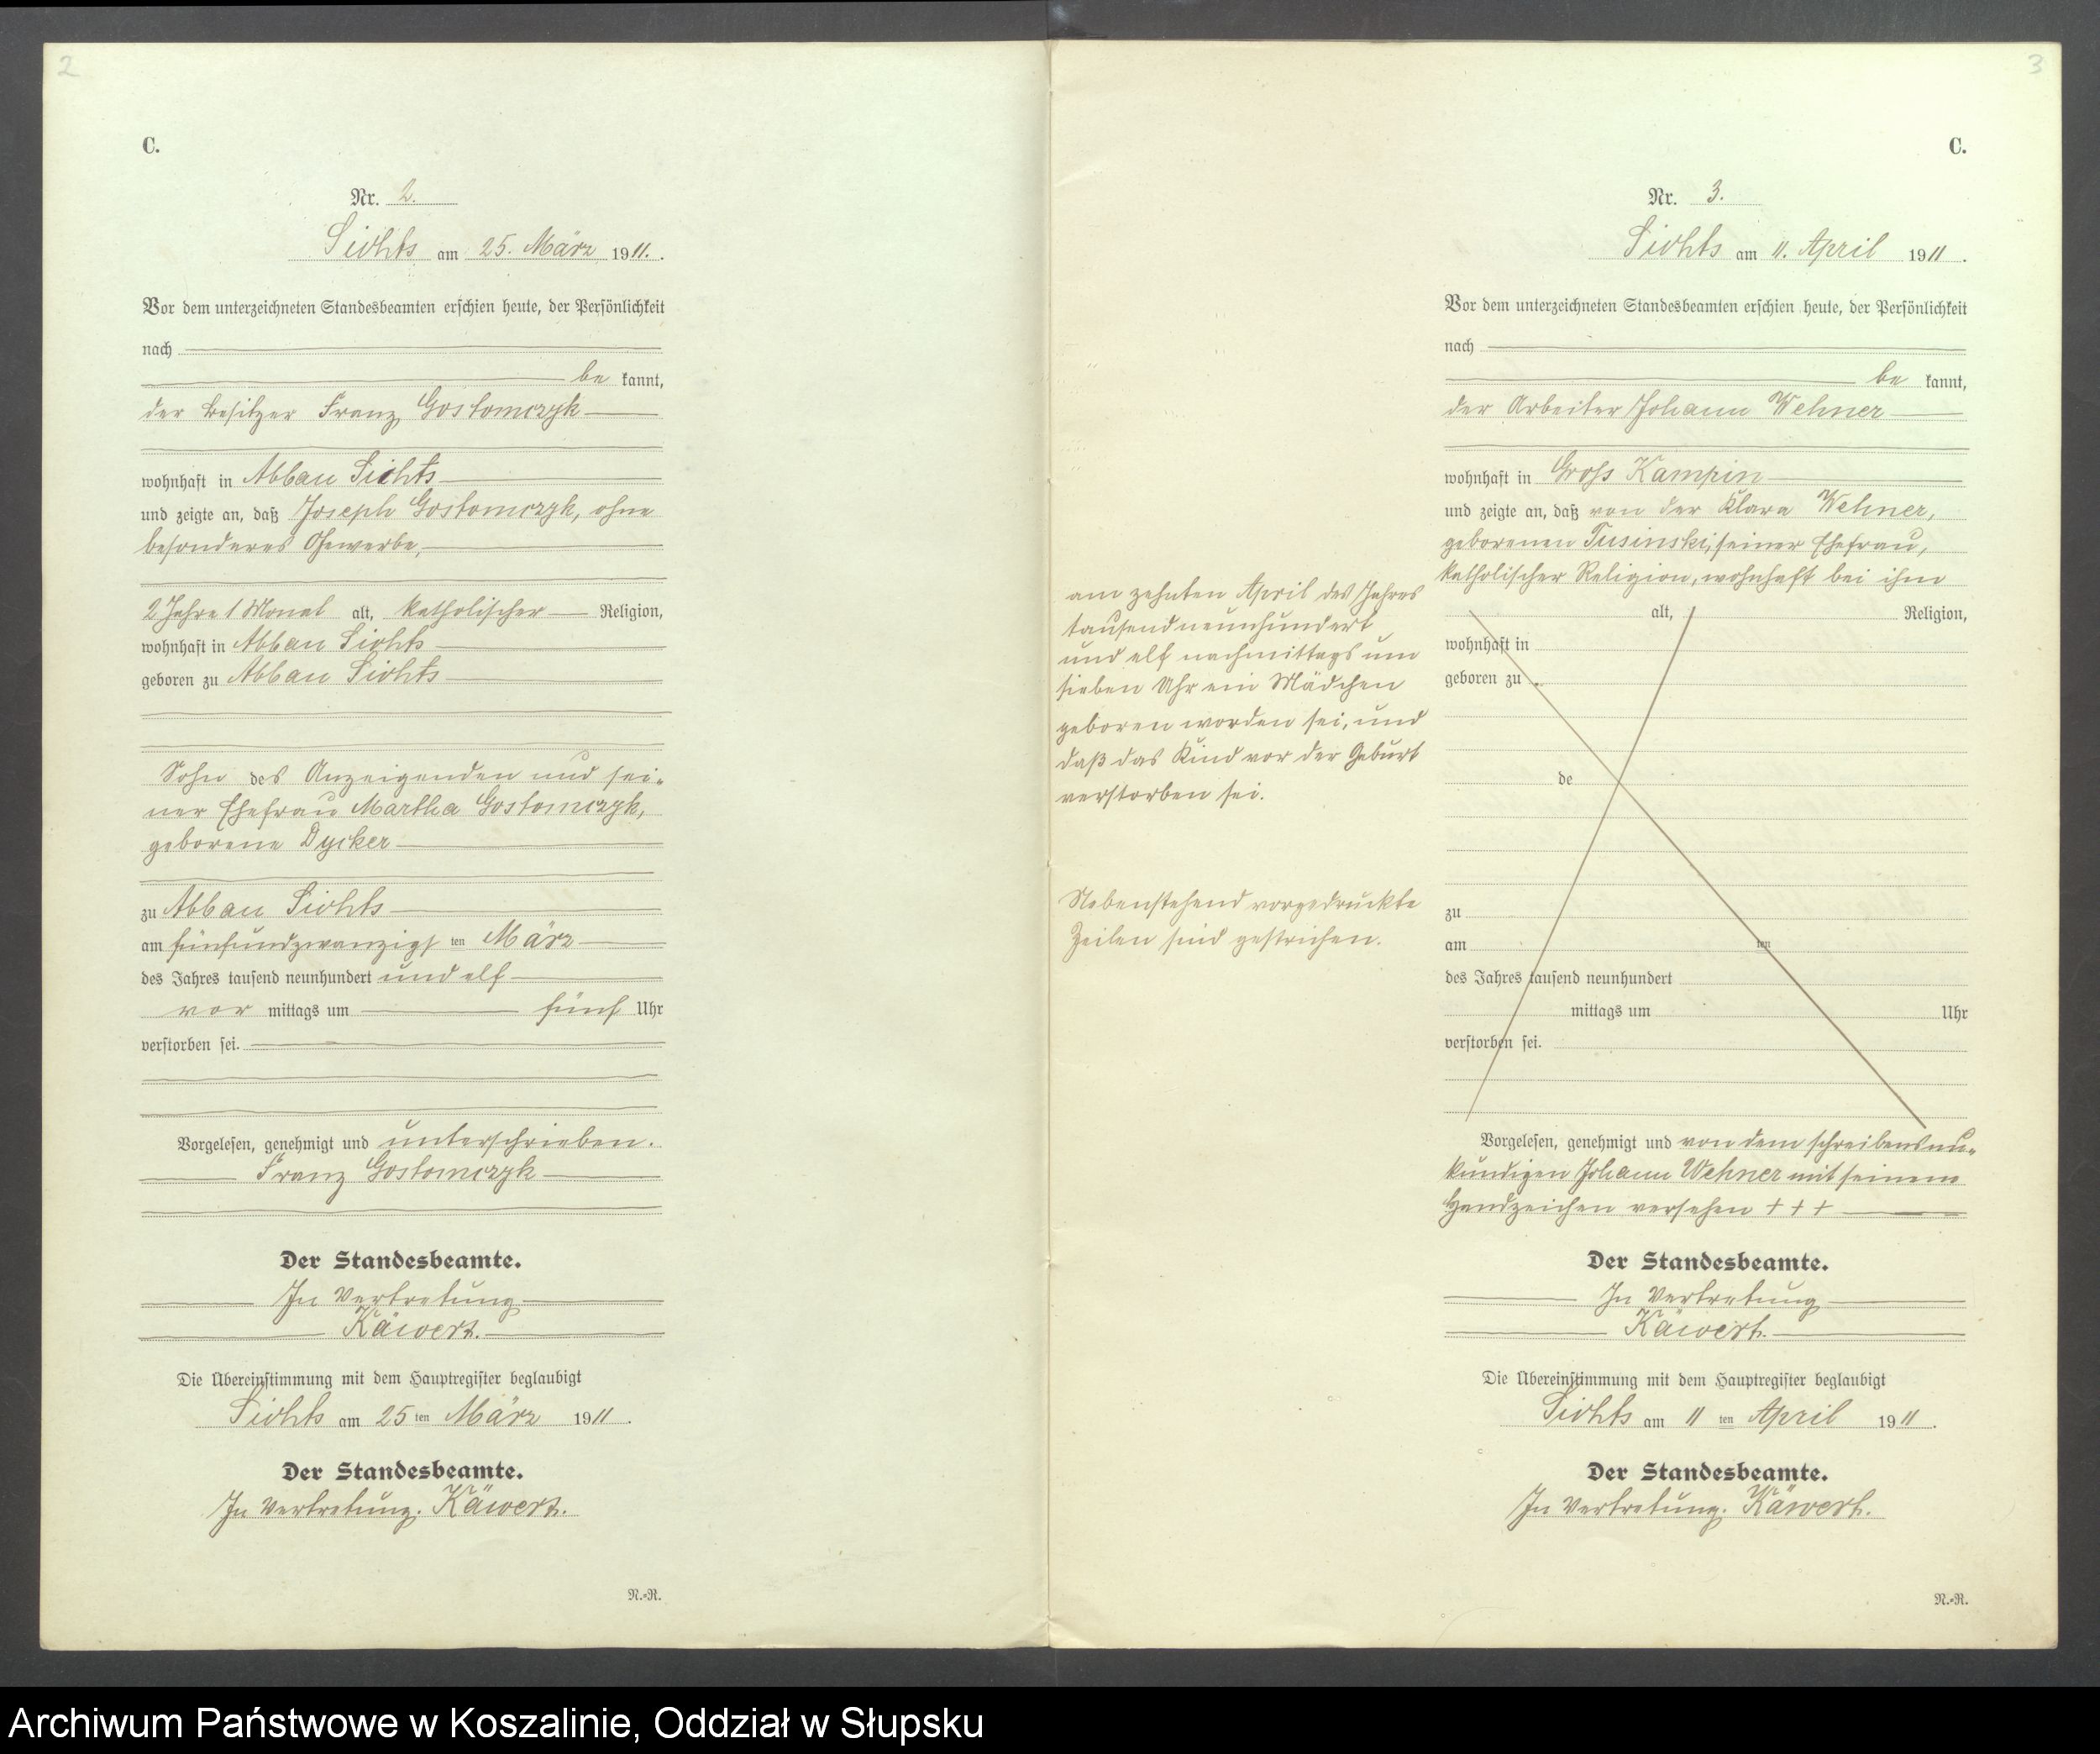 2
C.
Nr. 2.
Sichts am 25. März 1911.
Vor dem unterzeichneten Standesbeamten erschien heute, der Persönlichkeit
nach
be kannt,
der Besitzer Franz Gostomczyk
wohnhaft in Abbau Sichts
und zeigte an, daß Joseph Gostomczyk, ohne
besonderes Gewerbe,
2 Jahre 1 Monat alt, katholischer Religion,
wohnhaft in Abbau Sichts
geboren zu Abbau Sichts
Sohn des Anzeigenden und sei-
ner Ehefrau Martha Gostomczyk,
geborene Dycker
zu Abbau Sichts
am fünfundzwanzigs ten März
des Jahres tausend neunhundert und elf
vor mittags um fünf Uhr
verstorben sei.
Vorgelesen, genehmigt und unterschrieben.
Franz Gostomczyk
Der Standesbeamte.
In Vertretung
Käwert.
Die Übereinstimmung mit dem Hauptregister beglaubigt
Sichts am 25 ten März 1911.
Der Standesbeamte.
In Vertretung. Käwert.
N.-R.
3
C.
Nr. 3.
Sichts am 11. April 1911.
Vor dem unterzeichneten Standesbeamten erschien heute, der Persönlichkeit
nach
be kannt,
der Arbeiter Johann Wehner
wohnhaft in Gross Kampin
und zeigte an, daß von der Klara Wehner,
geborenen Tusinski, seiner Ehefrau,
katholischer Religion, wohnhaft bei ihm
am zehnten April des Jahres
tausend neunhundert
und elf nachmittags um
sieben Uhr ein Mädchen
geboren worden sei, und
daß das Kind vor der Geburt
verstorben sei.
Nebenstehend vorgedruckte
Zeilen sind gestrichen.
alt, Religion,
wohnhaft in
geboren zu
de
zu
am ten
des Jahres tausend neunhundert
mittags um Uhr
verstorben sei.
Vorgelesen, genehmigt und von dem schreibensun-
kundigen Johann Wehner mit seinem
Handzeichen versehen + + +
Der Standesbeamte.
In Vertretung
Käwert.
Die Übereinstimmung mit dem Hauptregister beglaubigt
Sichts am 11 ten April 1911.
Der Standesbeamte.
In Vertretung. Käwert.
N.-R.
Archiwum Państwowe w Koszalinie, Oddział w Słupsku